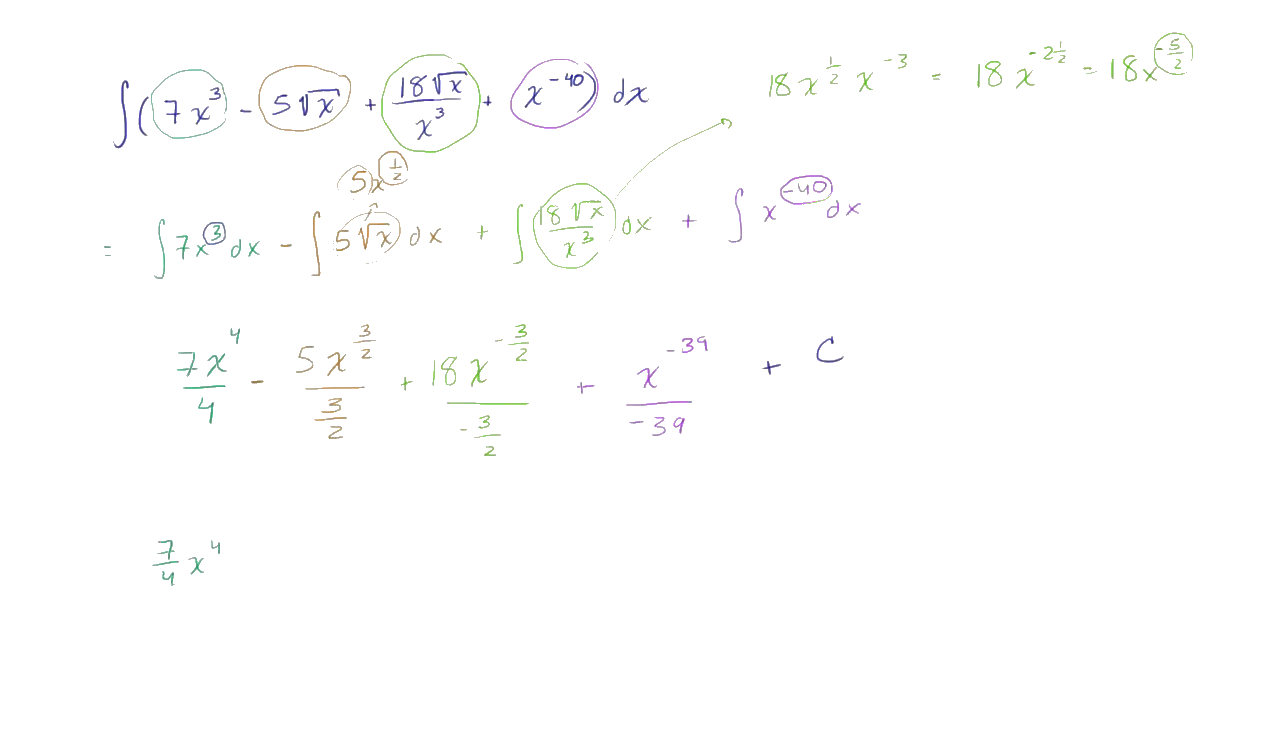 ∫(7x³ - 5√x + 18√x/x³ + x⁻⁴⁰) dx
18x^(1/2) x⁻³ = 18x^(-2 1/2) = 18x^(-5/2)
5x^(1/2)
= ∫7x³ dx - ∫5√x dx + ∫18√x/x³ dx + ∫x⁻⁴⁰ dx
7x⁴/4 - 5x^(3/2)/(3/2) + 18x^(-3/2)/(-3/2) + x⁻³⁹/-39 + C
7/4 x⁴